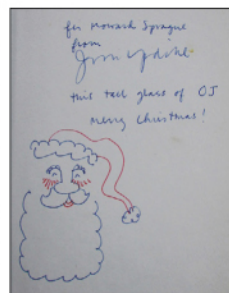 for Howard Sprague
from
John Updike
this tall glass of OJ
merry Christmas!